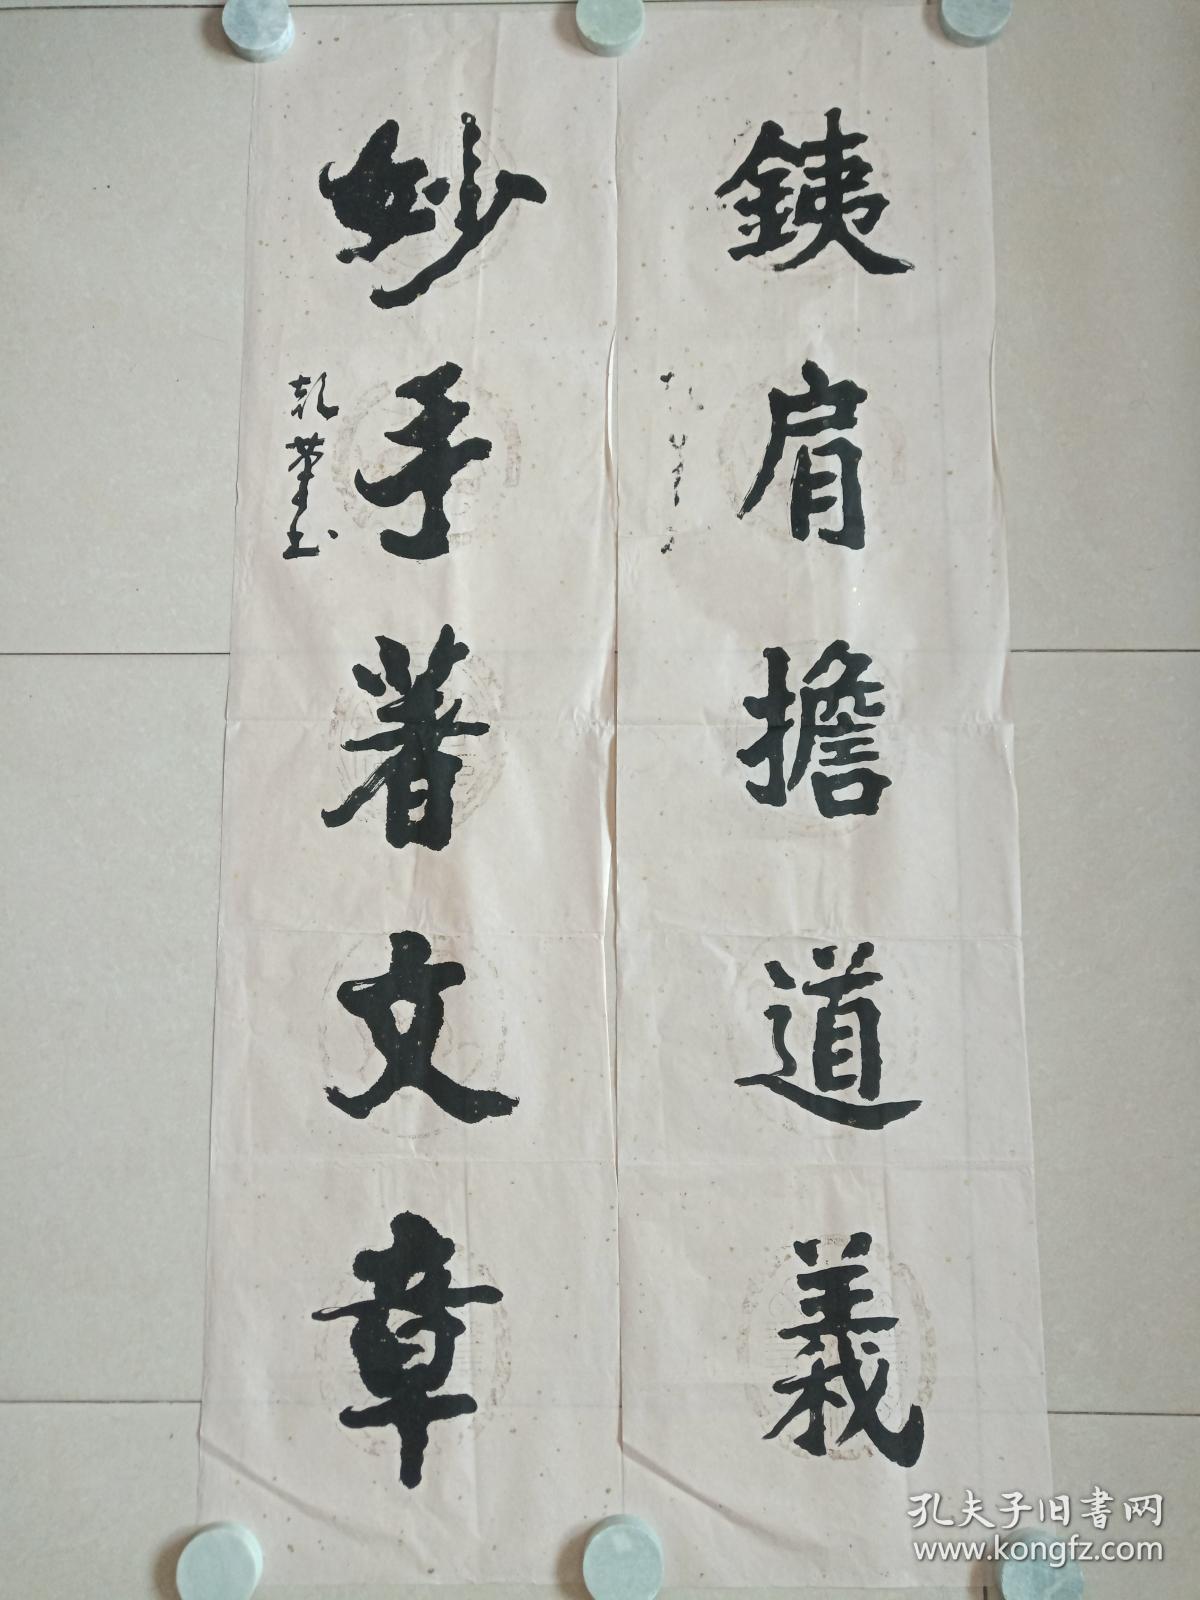 銕肩擔道義
妙手著文章
孔夫子旧書网
www.kongfz.com